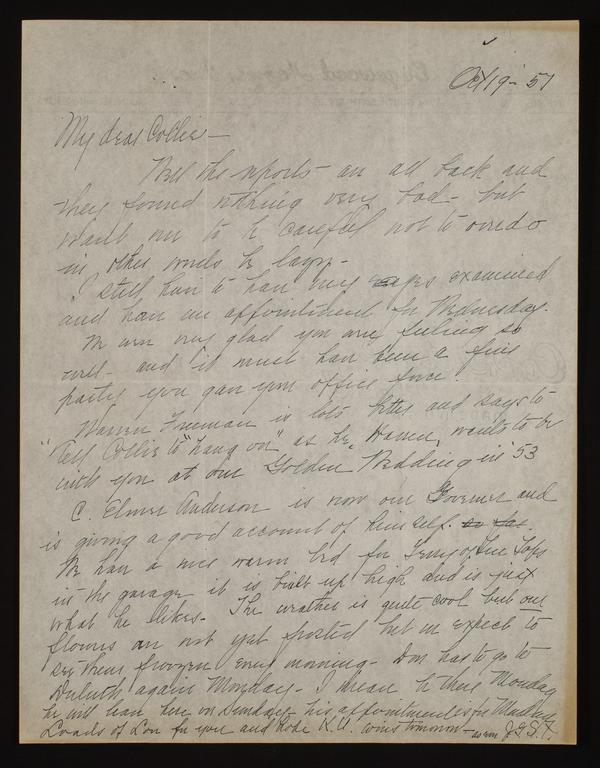 Oct 19 - 51
My dear Collie -
Well the reports - are all back and
they found nothing very bad - but
want me to be careful not to overdo
in other words be lazy -
I still have to have my eyes examined
and have an appointment for Wednesday.
We are very glad you are feeling so
well - and it must have been a fine
party you gave your office force.
Warren Freeman is lots better and says to
"Tell Collie to "hang on" as he, Warren, wants to be
with you at our Golden Wedding in '53
C. Elmer Anderson is now our Governor and
is giving a good account of himself.
We have a nice warm bed for
in the garage it is built up high and is just
what he likes - The weather is quite cool but our
flowers are not yet frosted but we expect to
see them frozen every morning - has to go to
Duluth again Monday - I mean be there Monday
he will leave here on Sunday his appointment is for Monday
Loads of Love for you and hope K.U. wins tomorrow -